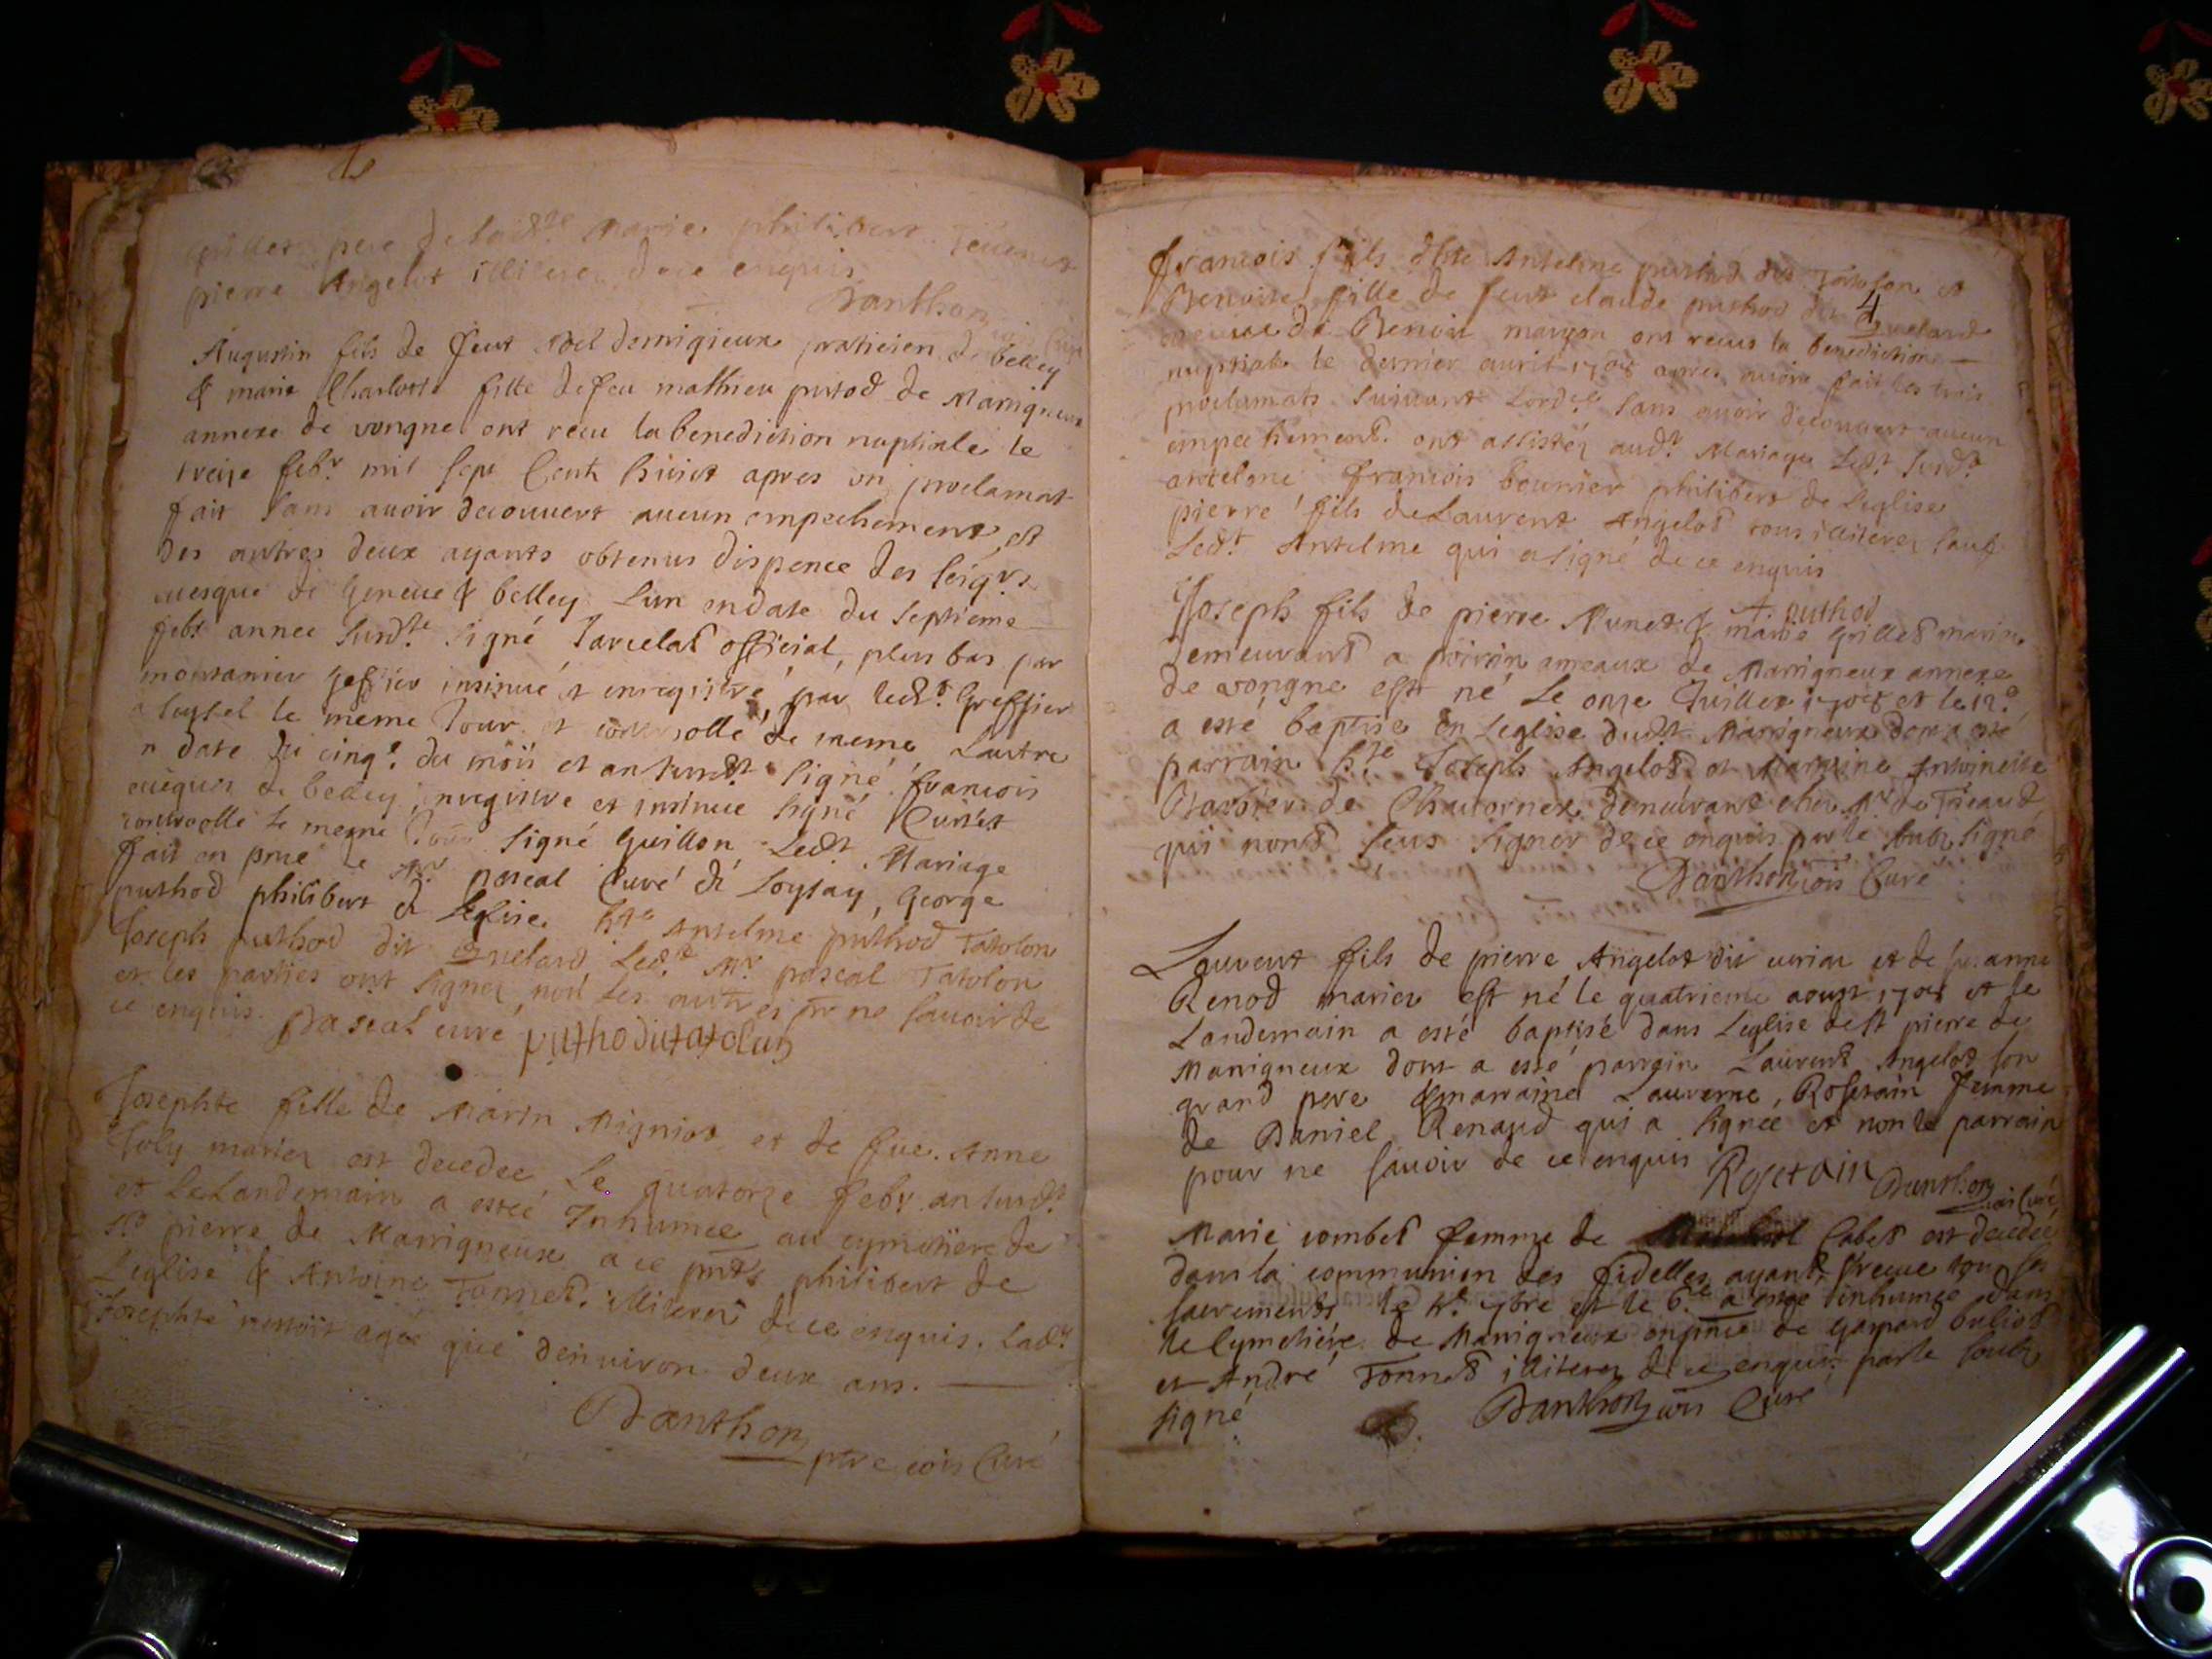 pere de lad.te Marie philibert
pierre Angelot illiterez de ce enquis
Danthon
Augustin fils de feut Abel demigieux praticien de belley
& marie Charlotte fille defeu mathieu putod de Marrigneux
annexe de vongne ont receu la benediction nuptiale le
treize febr mil sept Cent huict apres un proclamat
fait sans auoir decouuert aucun empechement et
des autres deux ayants obtenus dispence des seigrs
euesque de Geneue & belley Lun endate du septieme
febr annee surdte signé Jarcelat official, plus bas par
montanier greffier insinué et enregistré par ledt. Greffier
a seyssel le meme Jour et controllé de meme, Lautre
n date du cinqe. du mois et an surdt signé francois
euéque de belley, enregistre et insinue signé Curlet
controollé le meme Jour signé Guillon Ledt Mariage
fait en pnce de Mr. pascal Curé de Loysay, George
puthod philibert de Leglise hte Antelme puthod Tatolon
Joseph puthod dit Guelard Ledt. Mr pascal Tatolon
et les parties ont signez, non les autres pr ne sauoir de
ce enquis. pascal curé puthodutatolun
Josephte fille de Marin Migniot et de fue. Anne
Joly mariez est decedee Le quatorze febr. an surdt
et Le Landemain a esteé Inhumee au cymetiere de
St pierre de Marrigneux a ce pnts philibert de
Leglise & Antoine Tonnet. illiterez de ce enquis. Ladt
Josephte nestoit agée que denuiron deux ans.
Danthon ptre cois Curé
4
francois fils dhte Antelme puthod dit Tatolon et
Benoite fille de feut claude puthod dit Guelard
veuue de Benoit mayon ont receus la benediction
nuptiale le dernier auril 1708 apres auoir fait les trois
proclamats suiuant Lordce sans auoir decouuert aucun
empechement. ont assistéz audt Mariage Ledt. surdt
antelme francois bournier philibert de Leglise
pierre fils de Laurent Angelot tous illiterez sauf
Ledt Antelme qui a signé de ce enquis
A puthod
Joseph fils de pierre Munet & marie Grillet mariez
demeurant a poirin ameaux de Marrigneux annexe
de vongne est né Le onze Juillet 1708 et le 12e
a esté baptise en Leglise dudt Marrigneux dont a esté
parrain hte Joseph Angelot et Marraine Antoinette
Barbier de Chauornex demeurant chez Mr de Treaud
qui nont seus signer de ce enquis par le soubz signé
Danthon cois Curé
Laurent fils de pierre Angelot dit uriaz et de susanne
Renod mariez est né le quatrieme aoust 1708 et le
Landemain a esté baptisé dans Leglise de st pierre de
Marrigneux dont a esté parrain Laurent Angelot son
grand pere & marraine Laurence, Rosetain femme
de Daniel Renaud qui a signée et non le parrain
pour ne sauoir de ce enquis
Rosetain Danthon cois curé
Marie combet femme de Cabet est decedee
dans la communion des fidelles ayant receue tous ses
sacrements le 4e 7bre et le 6e a estee inhumee dans
le Cymetiére de Marrigneux en pnce de Gaspard buliod
et André Tonnet illiterez de ce enquis par le soubz
signé Danthon cois Curé